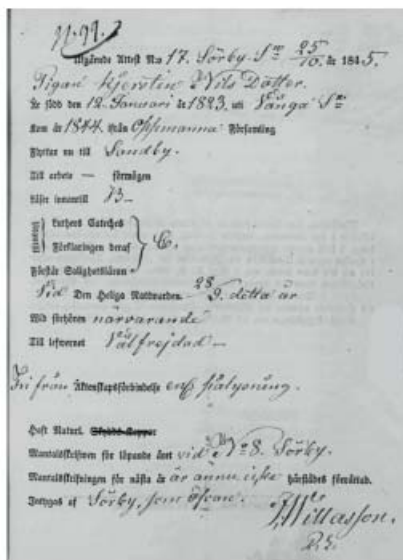 N. 99.
Utgående Attest N:o 17. Sörby Sn 25/10. år 1845.
Pigan Kjerstin Nils Dotter.
Är född den 12 Januari år 1823. uti Vånga Sn
Kom år 1844. från Oppmanna Församling
Flyttar nu till Sandby.
Till arbete — förmögen
Läser innantill B—
Lutheri Cateches
Förklaringen deraf C.
Förstår Salighetsläran
Vid Den Heliga Nattvarden detta år
Wid förhören närvarande
Till lefwernet Välfrejdad—
Fri från Äktenskapsförbindelse enl. sjelysning.
Haft Naturl. Skydds-Koppor
Mantalsskrifwen för löpande året vid No 8. Sörby.
Mantalsskrifningen för nästa år är ännu icke härstädes förrättad.
Intygas af Sörby, som ofvan.
Willasson.